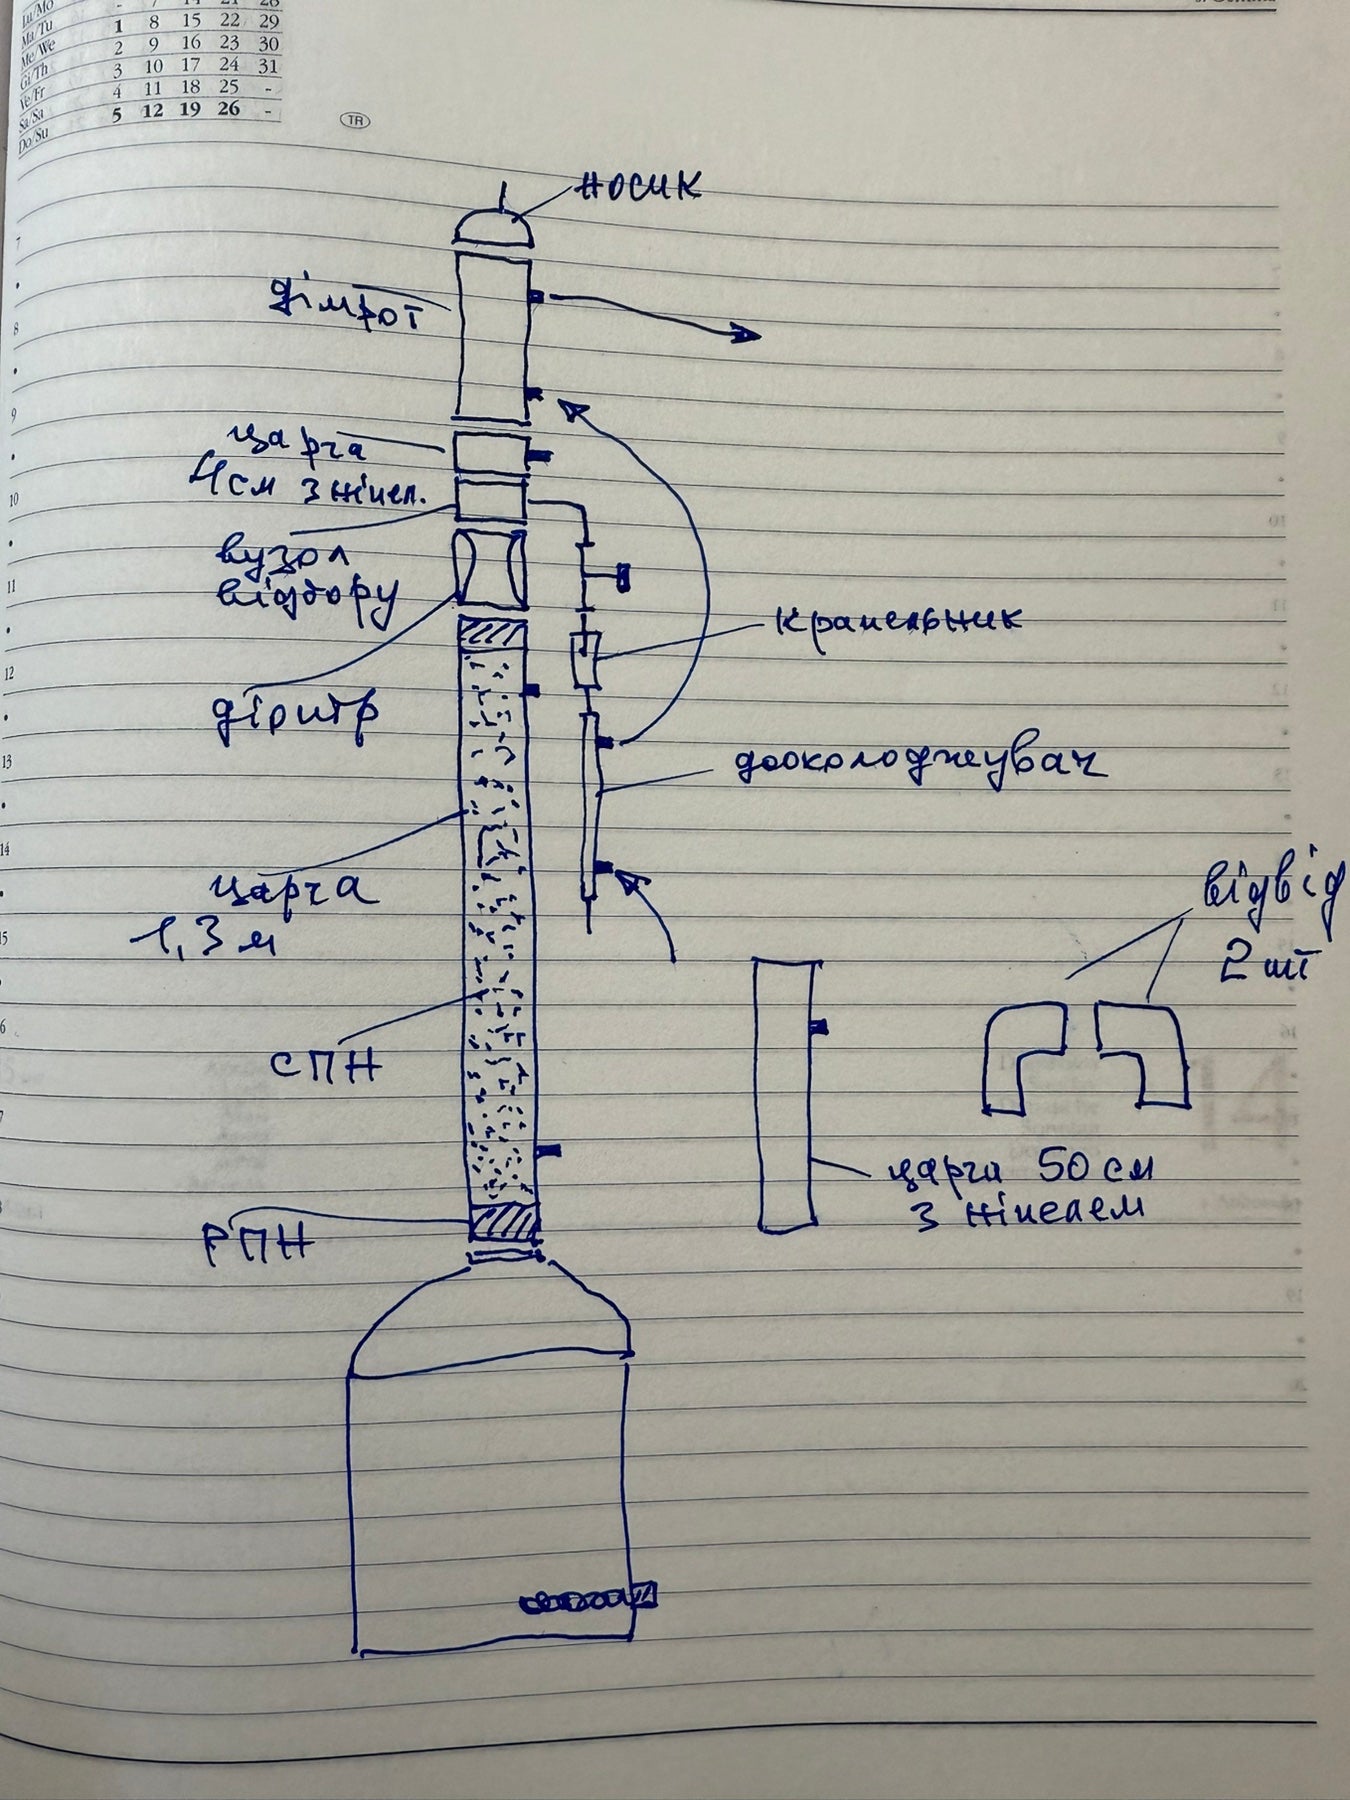 Lu/Mo - 7 14 21 28
Ma/Tu 1 8 15 22 29
Me/We 2 9 16 23 30
Gi/Th 3 10 17 24 31
Ve/Fr 4 11 18 25 -
Sa/Sa 5 12 19 26 -
Do/Su
TR
носик
дімрот
царга
4см з ніпел.
вузол
відбору
крапельник
діоптр
доохолоджувач
царга
1,3 м
відвід
2 шт
СПН
царга 50 см
з ніпелем
РПН
7
8
9
10
11
12
13
14
15